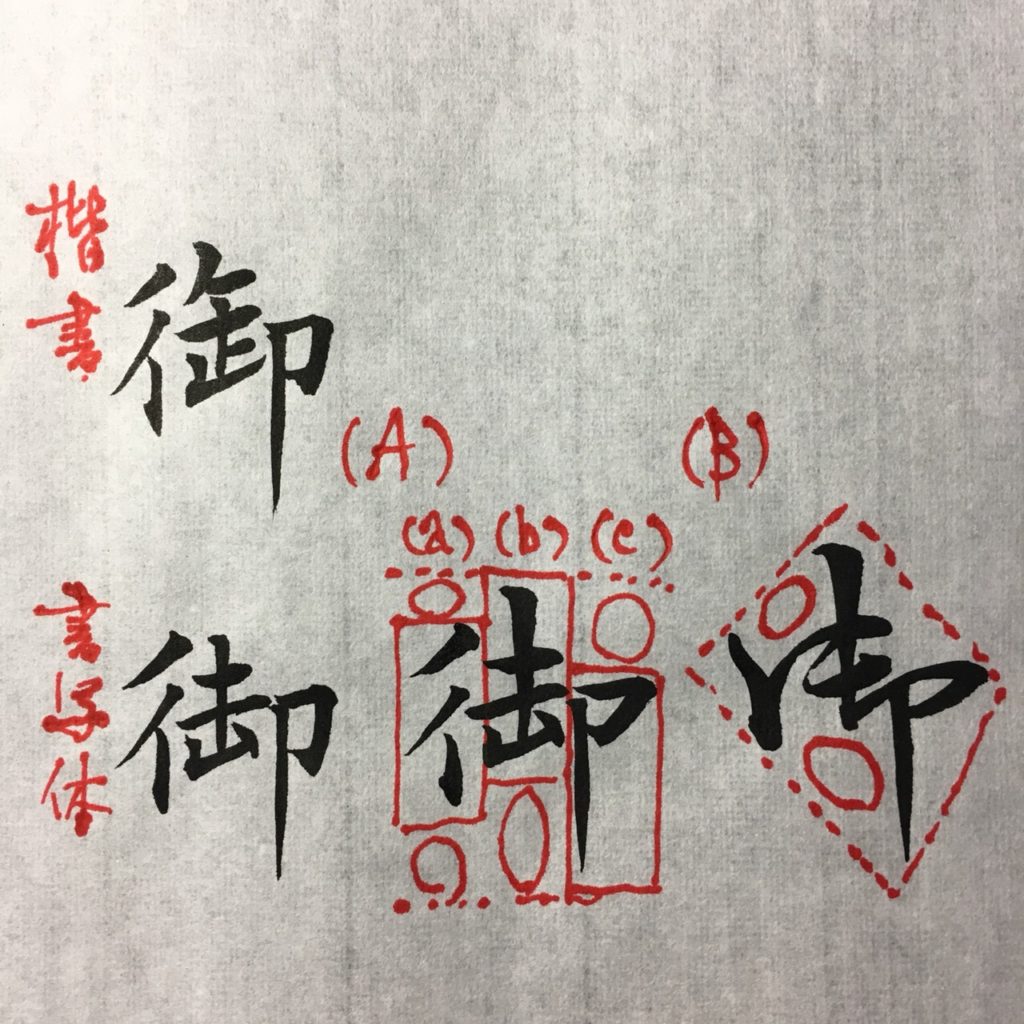 楷書
御
(A)
(B)
(a) (b) (c)
書写体
御 御 御